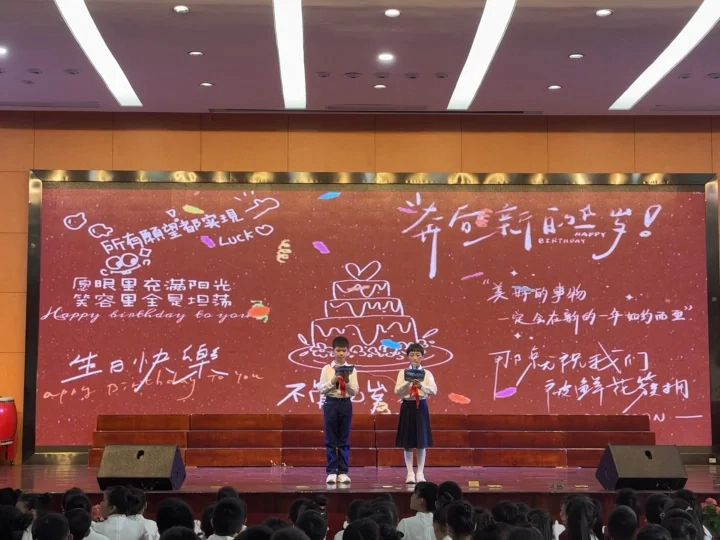 所有願望都实現
LUCK
愿眼里充滿阳光
笑容里全是坦荡
Happy birthday to you
生日快樂
appy birthday to you
奔向新的
岁!
HAPPY
BIRTHDAY
"美好的事物
一定会在新的一年如约而至"
那就祝我们
被鲜花簇拥
岁